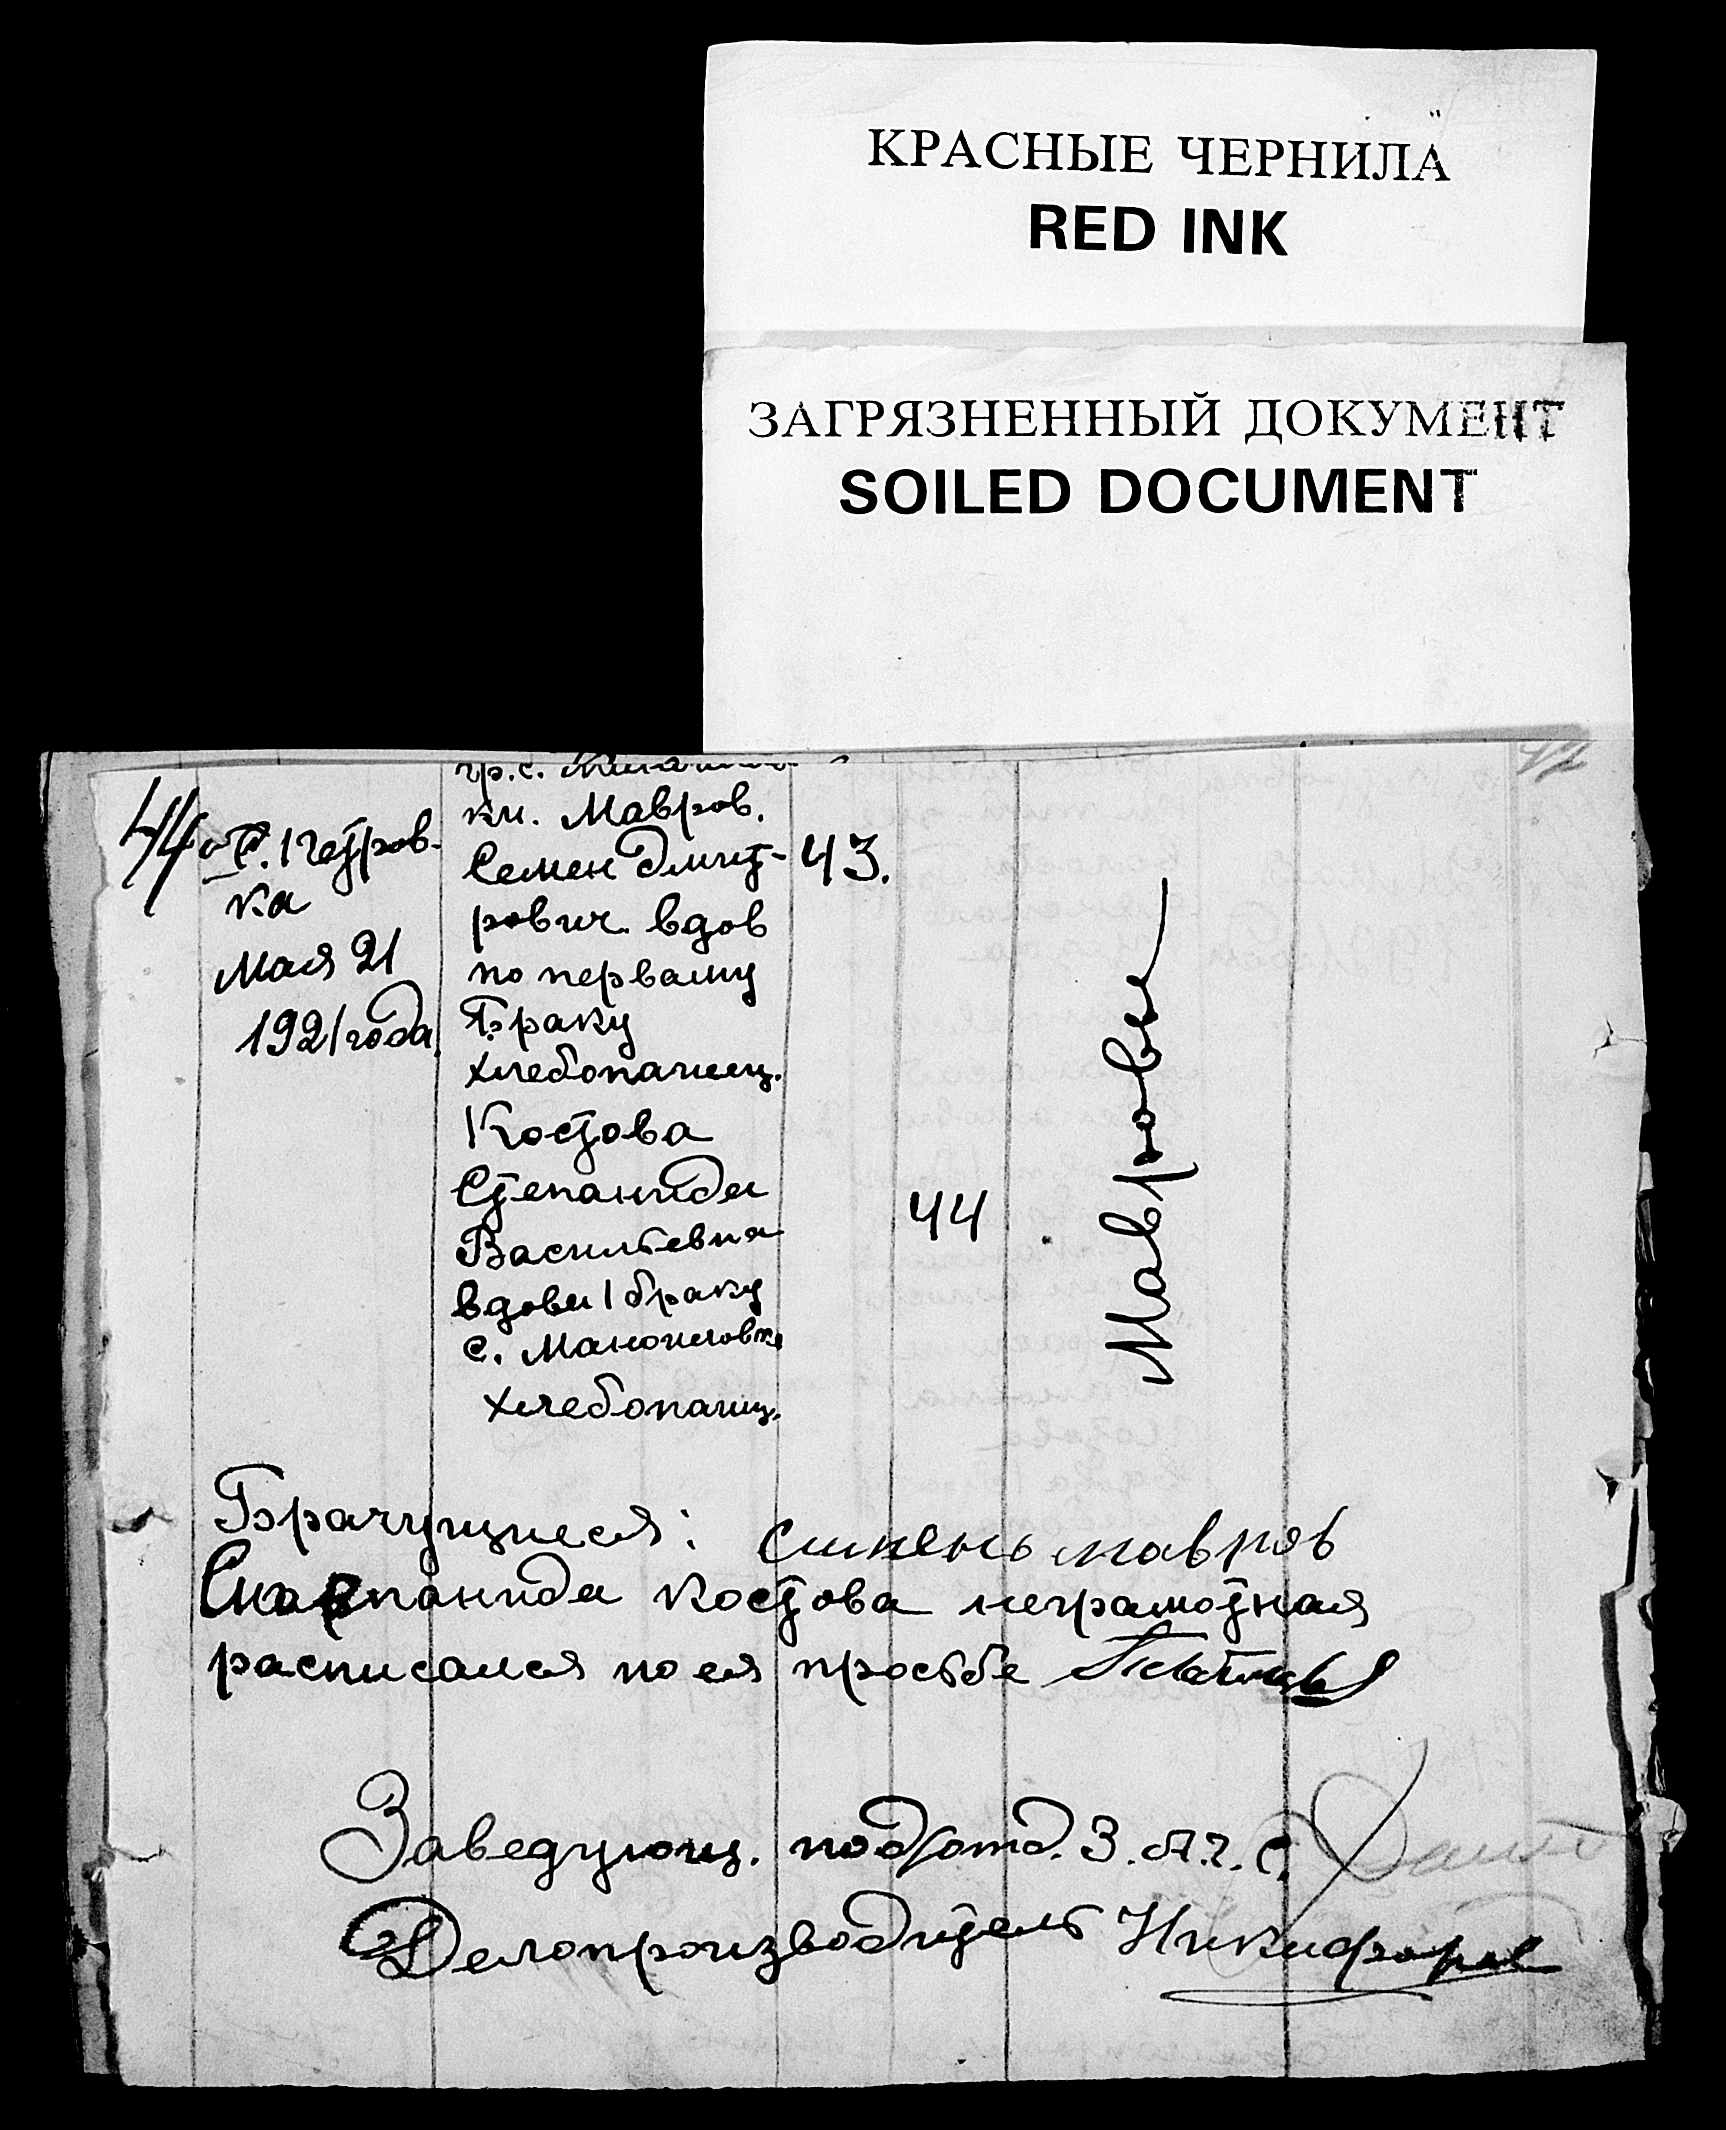 КРАСНЫЕ ЧЕРНИЛА
RED INK
ЗАГРЯЗНЕННЫЙ ДОКУМЕНТ
SOILED DOCUMENT
44
Петров-
ка
мая 21
1921 года.
гр. с.
ки. Мавров.
Семен Дмит-
рович вдов
по первому
браку
хлебопашец.
Костова
Степанида
Васильевна
вдова 1 браку
с. Манойловки
хлебопашц.
43.
44
Мавровы
Брачущиеся: Симень мавров
Степанида Костова неграмотная
расписался по ея простбе
Заведующ. подотд. З.А.Г.С.
Делопроизводитель Никифоров